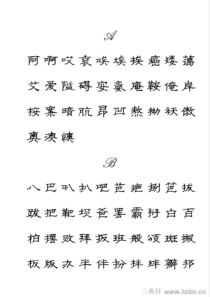 A
阿啊哎哀唉埃挨癌矮蔼
艾爱隘碍安氨庵鞍俺岸
按案暗肮昂凹熬拗袄傲
奥澳懊
B
八巴叭扒吧笆疤捌笆拔
跋把靶坝爸罢霸白百
柏摆败拜班般颁斑搬
板版办半伴扮拌绊瓣邦
三典轩 www.3zitie.cn